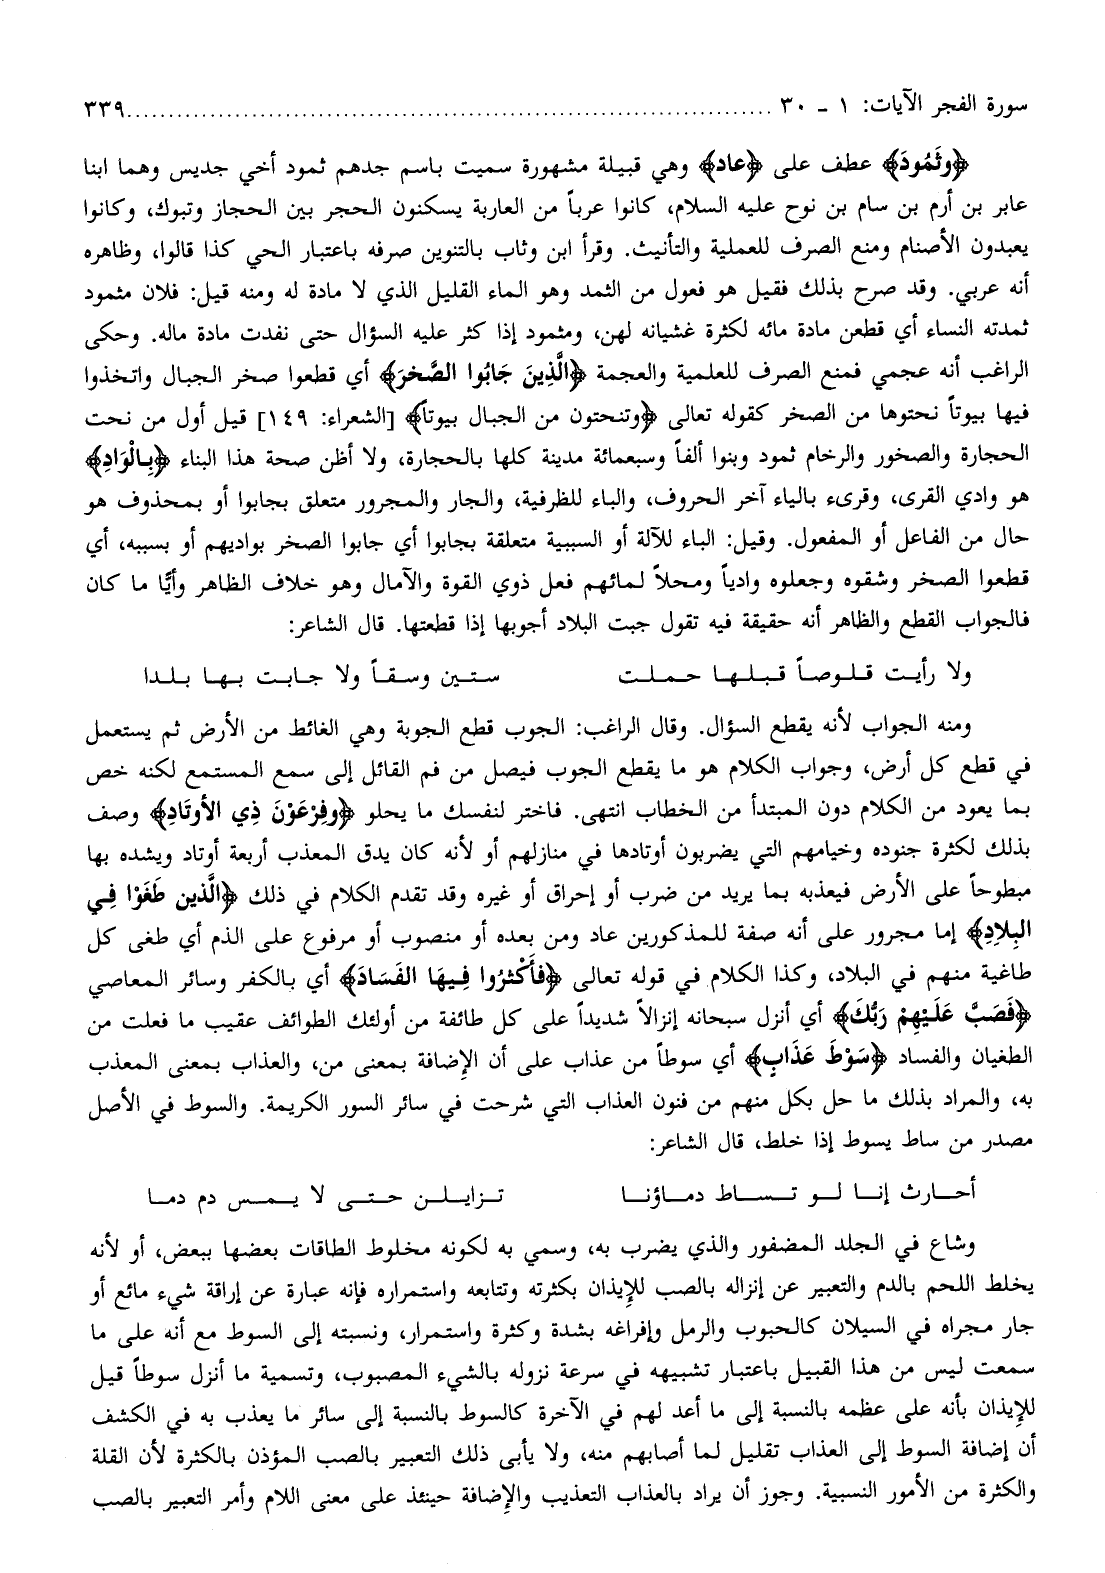 سورة الفجر الآيات: ١ ـ ٣٠ ........................................................................... ٣٣٩
﴿وثَمُودَ﴾ عطف على ﴿عاد﴾ وهي قبيلة مشهورة سميت باسم جدهم ثمود أخي جديس وهما ابنا
عابر بن أرم بن سام بن نوح عليه السلام، كانوا عرباً من العاربة يسكنون الحجر بين الحجاز وتبوك، وكانوا
يعبدون الأصنام ومنع الصرف للعملية والتأنيث. وقرأ ابن وثاب بالتنوين صرفه باعتبار الحي كذا قالوا، وظاهره
أنه عربي. وقد صرح بذلك فقيل هو فعول من الثمد وهو الماء القليل الذي لا مادة له ومنه قيل: فلان مثمود
ثمدته النساء أي قطعن مادة مائه لكثرة غشيانه لهن، ومثمود إذا كثر عليه السؤال حتى نفدت مادة ماله. وحكى
الراغب أنه عجمي فمنع الصرف للعلمية والعجمة ﴿الَّذِينَ جَابُوا الصَّخرَ﴾ أي قطعوا صخر الجبال واتخذوا
فيها بيوتاً نحتوها من الصخر كقوله تعالى ﴿وتنحتون من الجبال بيوتاً﴾ [الشعراء: ١٤٩] قيل أول من نحت
الحجارة والصخور والرخام ثمود وبنوا ألفاً وسبعمائة مدينة كلها بالحجارة، ولا أظن صحة هذا البناء ﴿بِالْوَادِ﴾
هو وادي القرى، وقرىء بالياء آخر الحروف، والباء للظرفية، والجار والمجرور متعلق بجابوا أو بمحذوف هو
حال من الفاعل أو المفعول. وقيل: الباء للآلة أو السببية متعلقة بجابوا أي جابوا الصخر بواديهم أو بسببه، أي
قطعوا الصخر وشقوه وجعلوه وادياً ومحلاً لمائهم فعل ذوي القوة والآمال وهو خلاف الظاهر وأيًّا ما كان
فالجواب القطع والظاهر أنه حقيقة فيه تقول جبت البلاد أجوبها إذا قطعتها. قال الشاعر:
ولا رأيت قلوصاً قبلها حملت ستين وسقاً ولا جابت بها بلدا
ومنه الجواب لأنه يقطع السؤال. وقال الراغب: الجوب قطع الجوبة وهي الغائط من الأرض ثم يستعمل
في قطع كل أرض، وجواب الكلام هو ما يقطع الجوب فيصل من فم القائل إلى سمع المستمع لكنه خص
بما يعود من الكلام دون المبتدأ من الخطاب انتهى. فاختر لنفسك ما يحلو ﴿وفِرْعَوْنَ ذِي الأوتَادِ﴾ وصف
بذلك لكثرة جنوده وخيامهم التي يضربون أوتادها في منازلهم أو لأنه كان يدق المعذب أربعة أوتاد ويشده بها
مبطوحاً على الأرض فيعذبه بما يريد من ضرب أو إحراق أو غيره وقد تقدم الكلام في ذلك ﴿الَّذين طَغَوْا فِي
البِلادِ﴾ إما مجرور على أنه صفة للمذكورين عاد ومن بعده أو منصوب أو مرفوع على الذم أي طغى كل
طاغية منهم في البلاد، وكذا الكلام في قوله تعالى ﴿فأَكْثرُوا فِيهَا الفَسَادَ﴾ أي بالكفر وسائر المعاصي
﴿فَصَبَّ عَلَيْهِمْ رَبُّكَ﴾ أي أنزل سبحانه إنزالاً شديداً على كل طائفة من أولئك الطوائف عقيب ما فعلت من
الطغيان والفساد ﴿سَوْطَ عَذَابٍ﴾ أي سوطاً من عذاب على أن الإضافة بمعنى من، والعذاب بمعنى المعذب
به، والمراد بذلك ما حل بكل منهم من فنون العذاب التي شرحت في سائر السور الكريمة. والسوط في الأصل
مصدر من ساط يسوط إذا خلط، قال الشاعر:
أحارث إنا لو تساط دماؤنا تزايلن حتى لا يمس دم دما
وشاع في الجلد المضفور والذي يضرب به، وسمي به لكونه مخلوط الطاقات بعضها ببعض، أو لأنه
يخلط اللحم بالدم والتعبير عن إنزاله بالصب للإيذان بكثرته وتتابعه واستمراره فإنه عبارة عن إراقة شيء مائع أو
جار مجراه في السيلان كالحبوب والرمل وإفراغه بشدة وكثرة واستمرار، ونسبته إلى السوط مع أنه على ما
سمعت ليس من هذا القبيل باعتبار تشبيهه في سرعة نزوله بالشيء المصبوب، وتسمية ما أنزل سوطاً قيل
للإيذان بأنه على عظمه بالنسبة إلى ما أعد لهم في الآخرة كالسوط بالنسبة إلى سائر ما يعذب به في الكشف
أن إضافة السوط إلى العذاب تقليل لما أصابهم منه، ولا يأبى ذلك التعبير بالصب المؤذن بالكثرة لأن القلة
والكثرة من الأمور النسبية. وجوز أن يراد بالعذاب التعذيب والإضافة حينئذ على معنى اللام وأمر التعبير بالصب